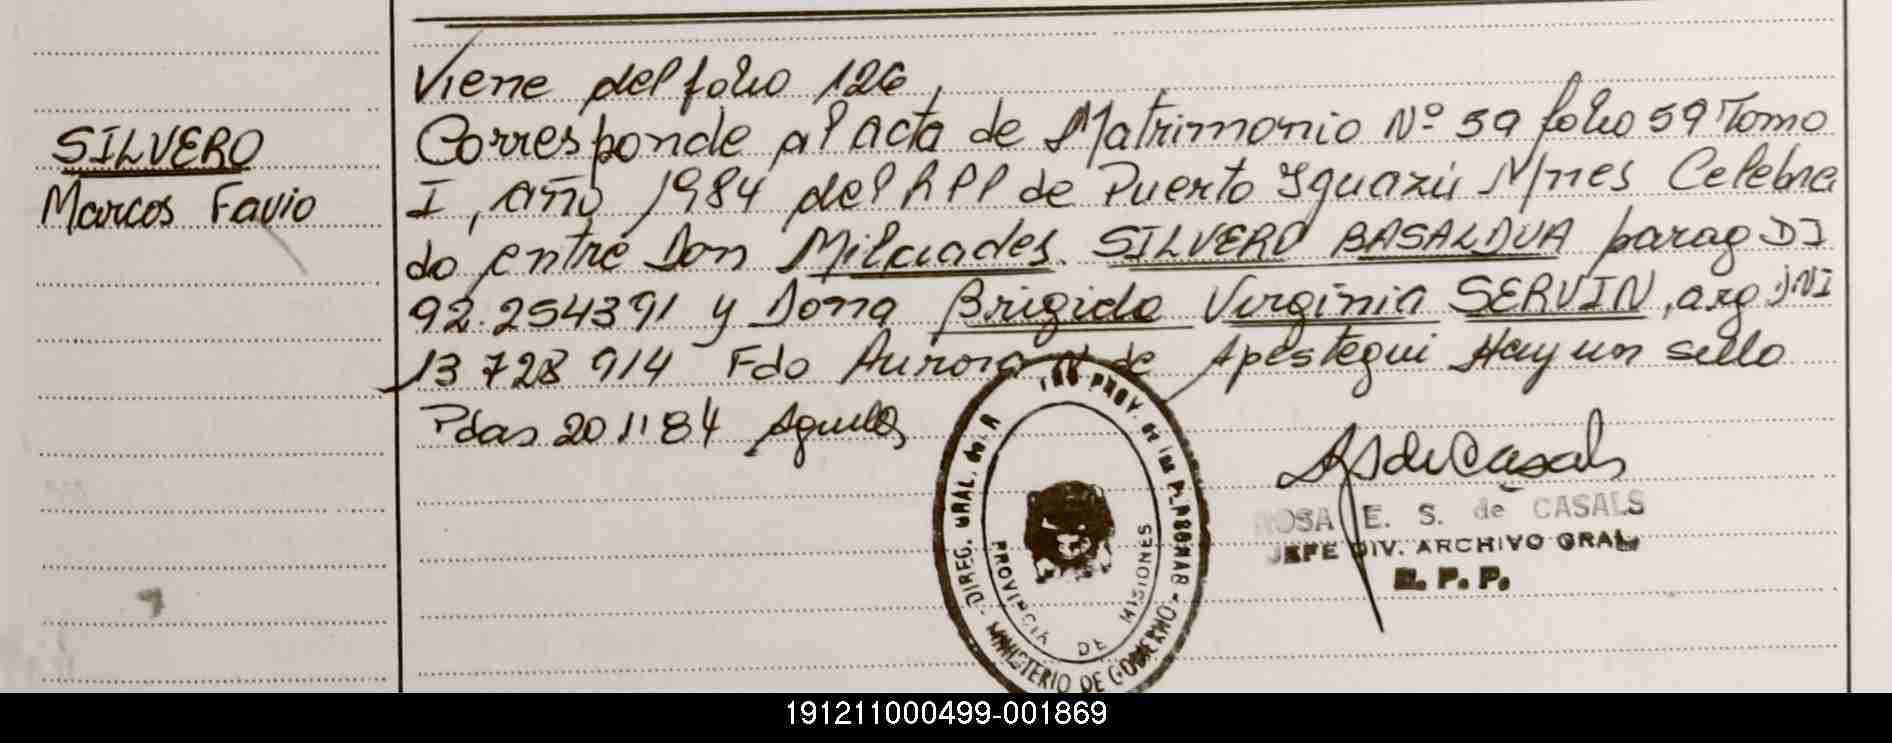 SILVERO
Marcos Favio
Viene del folio 126,
Corresponde al acta de Matrimonio Nº 59 folio 59 Tomo
I, año 1984 del RPP de Puerto Iguazú Mnes Celebra
do entre Don Milciades SILVERO BASALDUA parag DI
92.254391 y Dona Brigida Virginia SERVIN, arg DNI
13 728 914 Fdo Aurora N de Apestegui Hay un sello
Pdas 20 11 84
DIREG. GRAL. de PROV. de las PERSONAS - MINISTERIO DE GOBIERNO -
PROVINCIA DE MISIONES
ROSA E. S. de CASALS
JEFE DIV. ARCHIVO GRAL.
R. P. P.
191211000499-001869